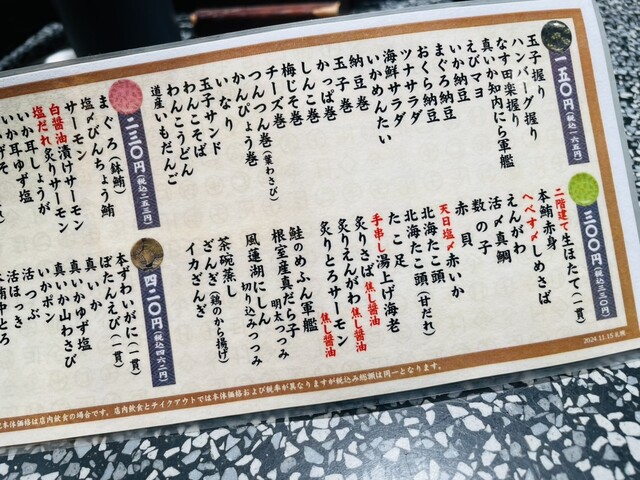 一五〇円(税込一六五円)
玉子握り
ハンバーグ握り
なす田楽握り
真いか知内にら軍艦
えびマヨ
いか納豆
まぐろ納豆
おくら納豆
ツナサラダ
海鮮サラダ
いかめんたい
納豆巻
玉子巻
かっぱ巻
しんこ巻
梅じそ巻
チーズ巻
つんつん巻(葉わさび)
かんぴょう巻
いなり
玉子サンド
わんこそば
わんこうどん
道産いもだんご
二三〇円(税込二五三円)
まぐろ(鉢鮪)
塩〆びんちょう鮪
サーモン
白醤油漬けサーモン
塩だれ炙りサーモン
いか耳しょうが
いか耳ゆず塩
三〇〇円(税込三三〇円)
二階建て生ほたて(一貫)
本鮪赤身
へべす〆しめさば
えんがわ
活〆真鯛
数の子
赤貝
天日塩〆赤いか
北海たこ頭
北海たこ頭(甘だれ)
たこ足
手串し湯上げ海老
炙りさば焦し醤油
炙りえんがわ焦し醤油
炙りとろサーモン焦し醤油
鮭のめふん軍艦
根室産真だら子明太つつみ
風蓮湖にしん切り込みつつみ
茶碗蒸し
ざんぎ(鶏のから揚げ)
イカざんぎ
四二〇円(税込四六二円)
本ずわいがに(一貫)
ぼたんえび(一貫)
真いか
真いかゆず塩
真いか山わさび
いかポン
活つぶ
活ほっき
本鮪中とろ
本体価格は店内飲食の場合です。店内飲食とテイクアウトでは本体価格および税率が異なりますが税込み総額は同一となります。
2024.11.15 札幌